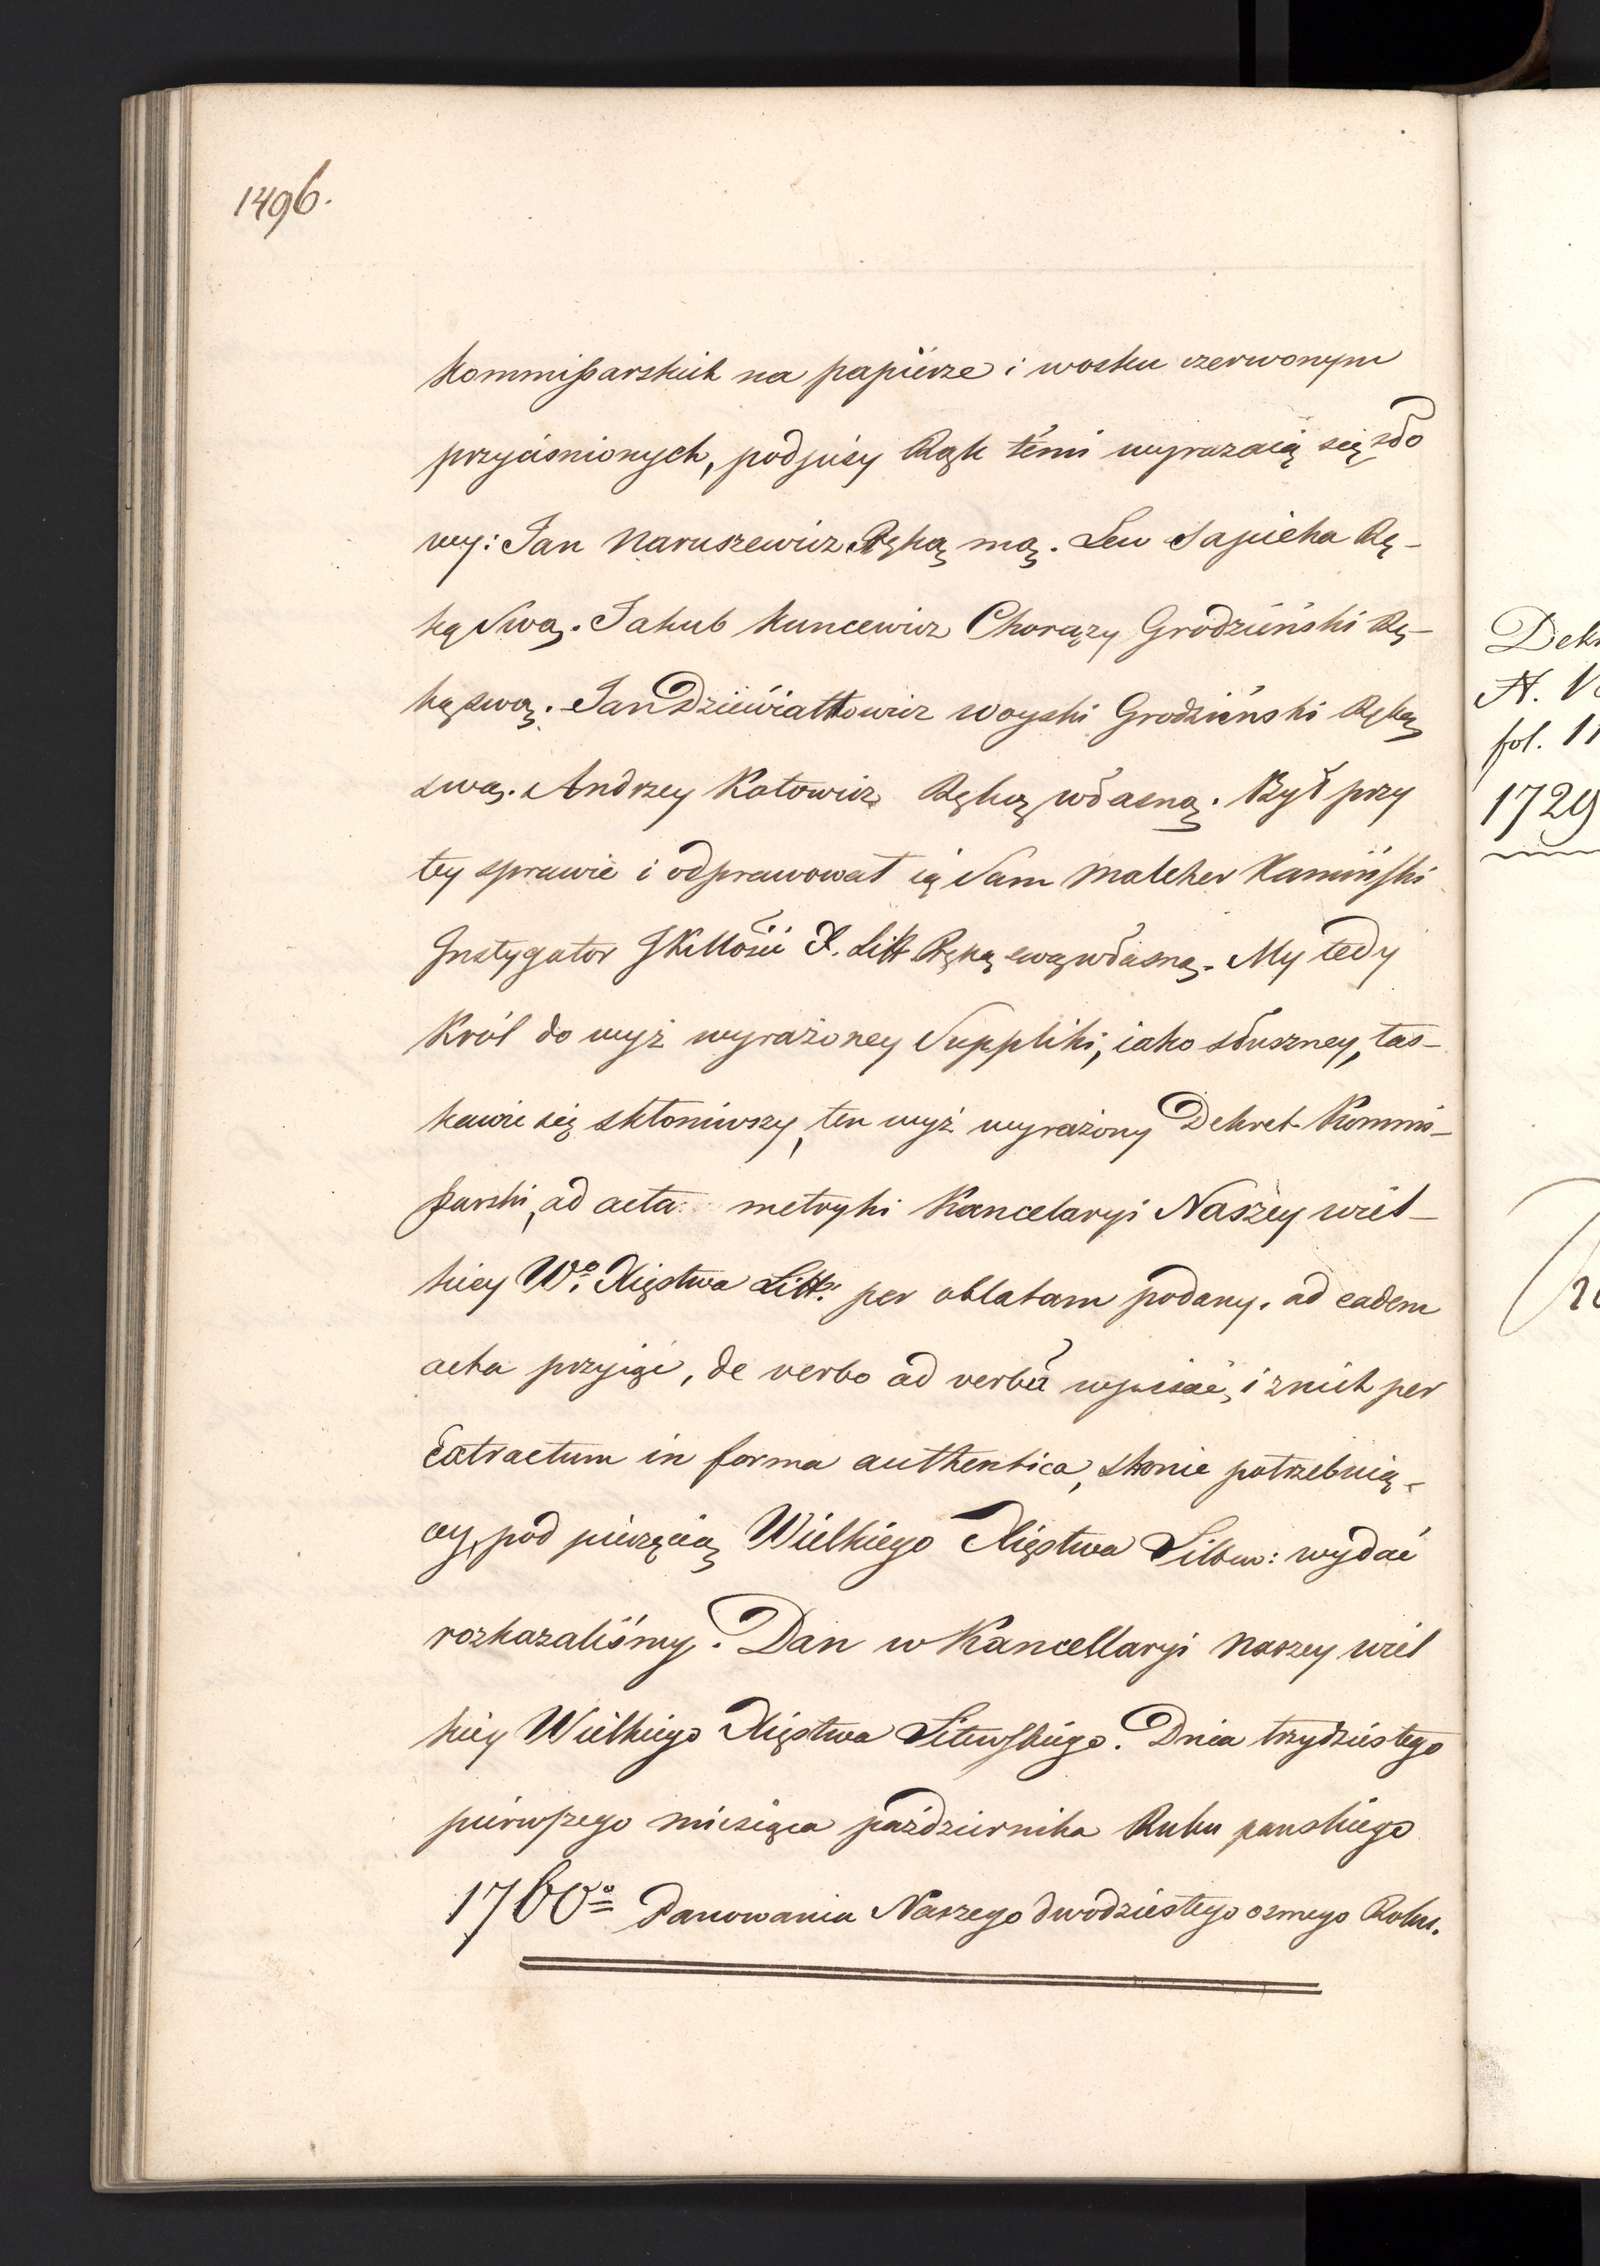 1496.
kommißarskich na papiérze i wosku czerwonym
przyciśnionych, podpisy Rąk témi wyrazaią się sło
wy: Jan Naruszewicz Ręką mą. Lew Sapieha Rę-
ką Swą. Jakub Kuncewicz Chorąży Grodzieński Rę-
ką swą. Jan Dziewiałtowicz woyski Grodzieński Ręką
swą. Andrzey Kotowicz Ręką własną. Był przy
tey sprawie i odprawował ią Sam Malcher Kamiński
Instygator JKMości X. Litt Ręką swą własną. My tedy
Król do wyż wyrażoney Suppliki, iako słuszney, łas-
kawie się skłoniwszy, ten wyż wyrażony Dekret Kommis-
ßarski, ad acta metryki Kancelaryi Naszey wiel-
kiey Wo. Xięstwa Litt: per oblatam podany, ad eadem
acta przyiąć, de verbo ad verbū wypisać, i znich per
Extractum in forma authentica, stronie potrzebuią-
cey, pod pieczęcią Wielkiego Xięstwa Littew: wydać
rozkazaliśmy. Dan w Kancellaryi naszey wiel
kiey Wielkiego Xięstwa Litewskiego. Dnia trzydziestego
pierwszego miesiąca października Roku pańskiego
1760o Panowania Naszego dwódziestego osmego Roku.
Dek
A. V
fol. 11
1729